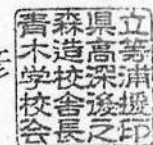 青森県立
木造高等
学校深浦
校舎後援
会長之印